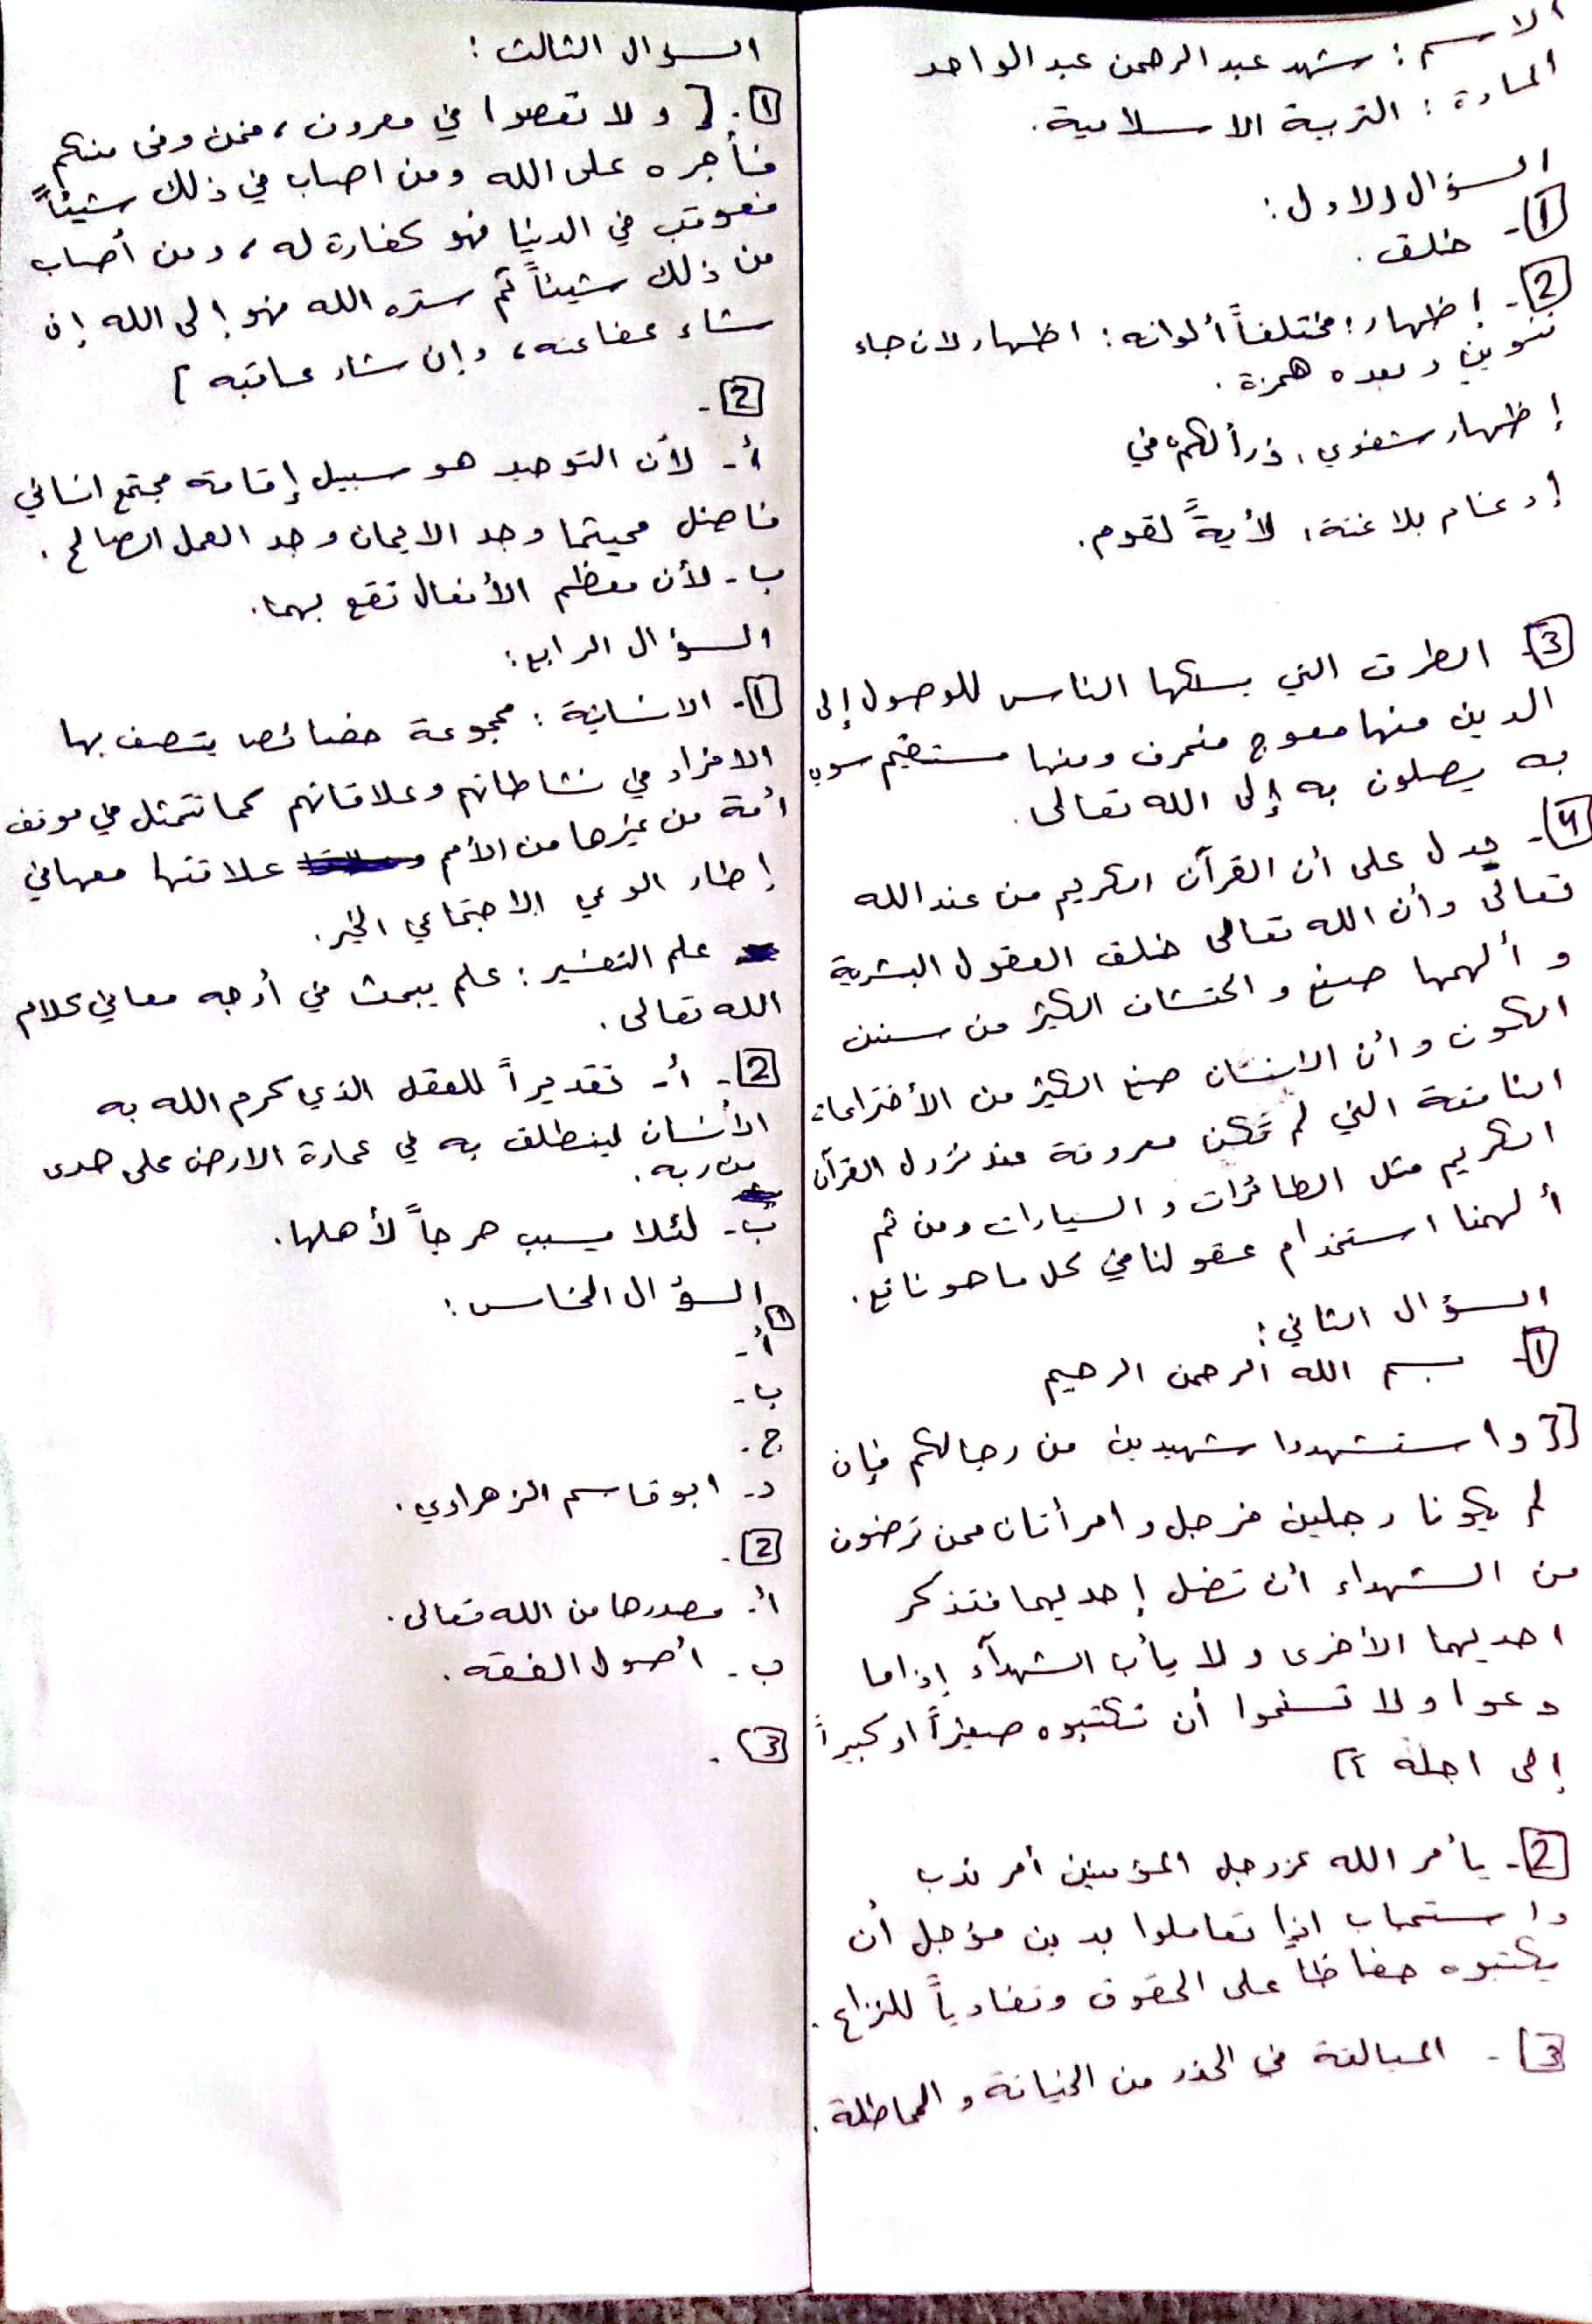 الاسم : شهد عبد الرحمن عبد الواحد
المادة : التربية الاسلامية .
السؤال الاول :
1- خلق .
2- إظهار : مختلفاً ألوانه : اظهار لان جاء
تنوين وبعده همزة .
إظهار شفوي : ذرأ لكم في
إدغام بلا غنة : لأيةً لقوم .
3- الطرق التي يسلكها الناس للوصول إلى
الدين منها معوج منحرف ومنها مستقيم سوي
به يصلون به إلى الله تعالى .
4- يدل على أن القرآن الكريم من عند الله
تعالى وأن الله تعالى خلق العقول البشرية
وألهمها صنع واكتشاف الكثير من سنن
الكون وأن الانسان صنع الكثير من الأختراعات
النافعة التي لم تكن معروفة عند نزول القرآن
الكريم مثل الطائرات والسيارات ومن ثم
ألهمنا استخدام عقولنا في كل ما هو نافع .
السؤال الثاني :
1- بسم الله الرحمن الرحيم
[[ واستشهدوا شهيدين من رجالكم فإن
لم يكونا رجلين فرجل وامرأتان ممن ترضون
من الشهداء أن تضل إحديهما فتذكر
احديهما الأخرى ولا يأب الشهدآء إذا ما
دعوا ولا تسئموا أن تكتبوه صغيراً او كبيراً
إلى اجله ]]
2- يأمر الله عزوجل المؤمنين أمر ندب
واستحباب اذا تعاملوا بدين مؤجل أن
يكتبوه حفاظاً على الحقوق وتفادياً للنزاع .
3- المبالغة في الحذر من الخيانة والمماطلة .
السؤال الثالث :
1. [ ولا تعصوا في معروف ، فمن وفى منكم
فأجره على الله ومن اصاب في ذلك شيئاً
فعوقب في الدنيا فهو كفارة له ، ومن أصاب
من ذلك شيئاً ثم ستره الله فهو إلى الله إن
شاء عفا عنه ، وإن شاء عاقبه ]
2-
أ- لأن التوحيد هو سبيل إقامة مجتمع انساني
فاضل فحيثما وجد الايمان وجد العمل الصالح .
ب- لأن معظم الأفعال تقع بهما .
السؤال الرابع :
1- الانسانية : مجموعة خصائص يتصف بها
الافراد في نشاطاتهم وعلاقاتهم كما تتمثل في موقف
أمة من غيرها من الأمم و علاقتها معها في
إطار الوعي الاجتماعي الخير .
علم التفسير : علم يبحث في أوجه معاني كلام
الله تعالى .
2- أ- تقديراً للعقل الذي كرم الله به
الأنسان لينطلق به في عمارة الارض على هدى
من ربه .
ب- لئلا يسبب حرجاً لأهلها .
السؤال الخامس :
1
أ-
ب-
ج-
د- ابو قاسم الزهراوي .
2-
أ. مصدرها من الله تعالى .
ب- أصول الفقه .
3-